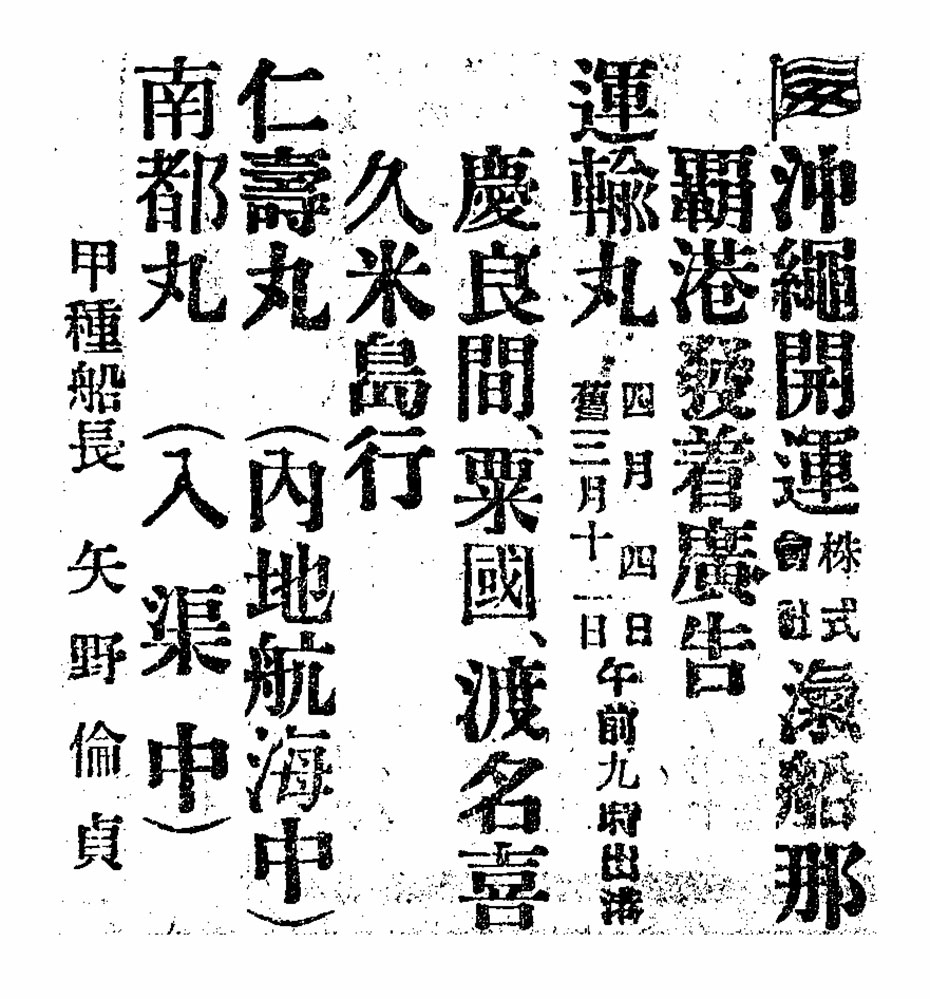 沖繩開運株式會社滊船那
覇港發着廣告
運輸丸 四月四日 舊三月十一日 午前九時出港
慶良間、粟國、渡名喜
久米島行
仁壽丸（內地航海中）
南都丸（入渠中）
甲種船長 矢野倫貞